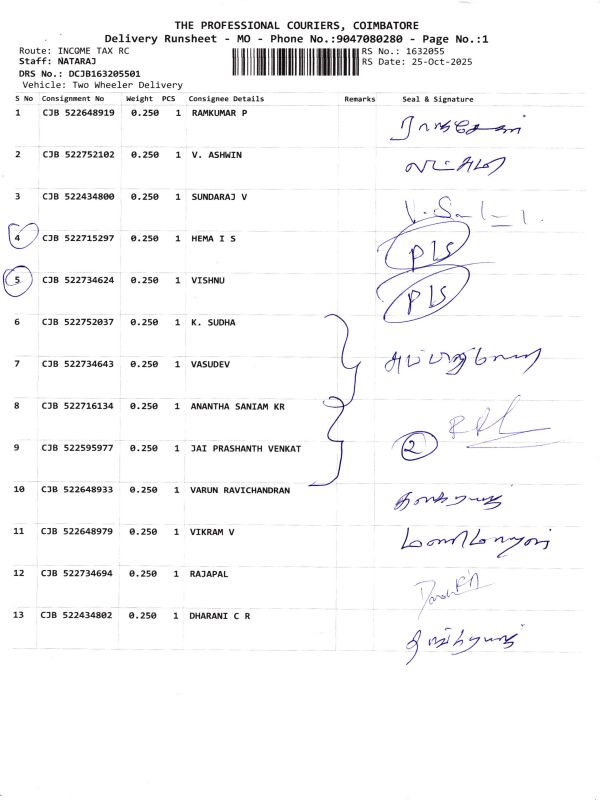 THE PROFESSIONAL COURIERS, COIMBATORE
Delivery Runsheet - MO - Phone No.:9047080280 - Page No.:1
Route: INCOME TAX RC RS No.: 1632055
Staff: NATARAJ RS Date: 25-Oct-2025
DRS No.: DCJB163205501
Vehicle: Two Wheeler Delivery
S No Consignment No Weight PCS Consignee Details Remarks Seal & Signature
1 CJB 522648919 0.250 1 RAMKUMAR P
2 CJB 522752102 0.250 1 V. ASHWIN
3 CJB 522434800 0.250 1 SUNDARAJ V
4 CJB 522715297 0.250 1 HEMA I S PLS
5 CJB 522734624 0.250 1 VISHNU PLS
6 CJB 522752037 0.250 1 K. SUDHA
7 CJB 522734643 0.250 1 VASUDEV
8 CJB 522716134 0.250 1 ANANTHA SANIAM KR
9 CJB 522595977 0.250 1 JAI PRASHANTH VENKAT 2
10 CJB 522648933 0.250 1 VARUN RAVICHANDRAN
11 CJB 522648979 0.250 1 VIKRAM V
12 CJB 522734694 0.250 1 RAJAPAL
13 CJB 522434802 0.250 1 DHARANI C R